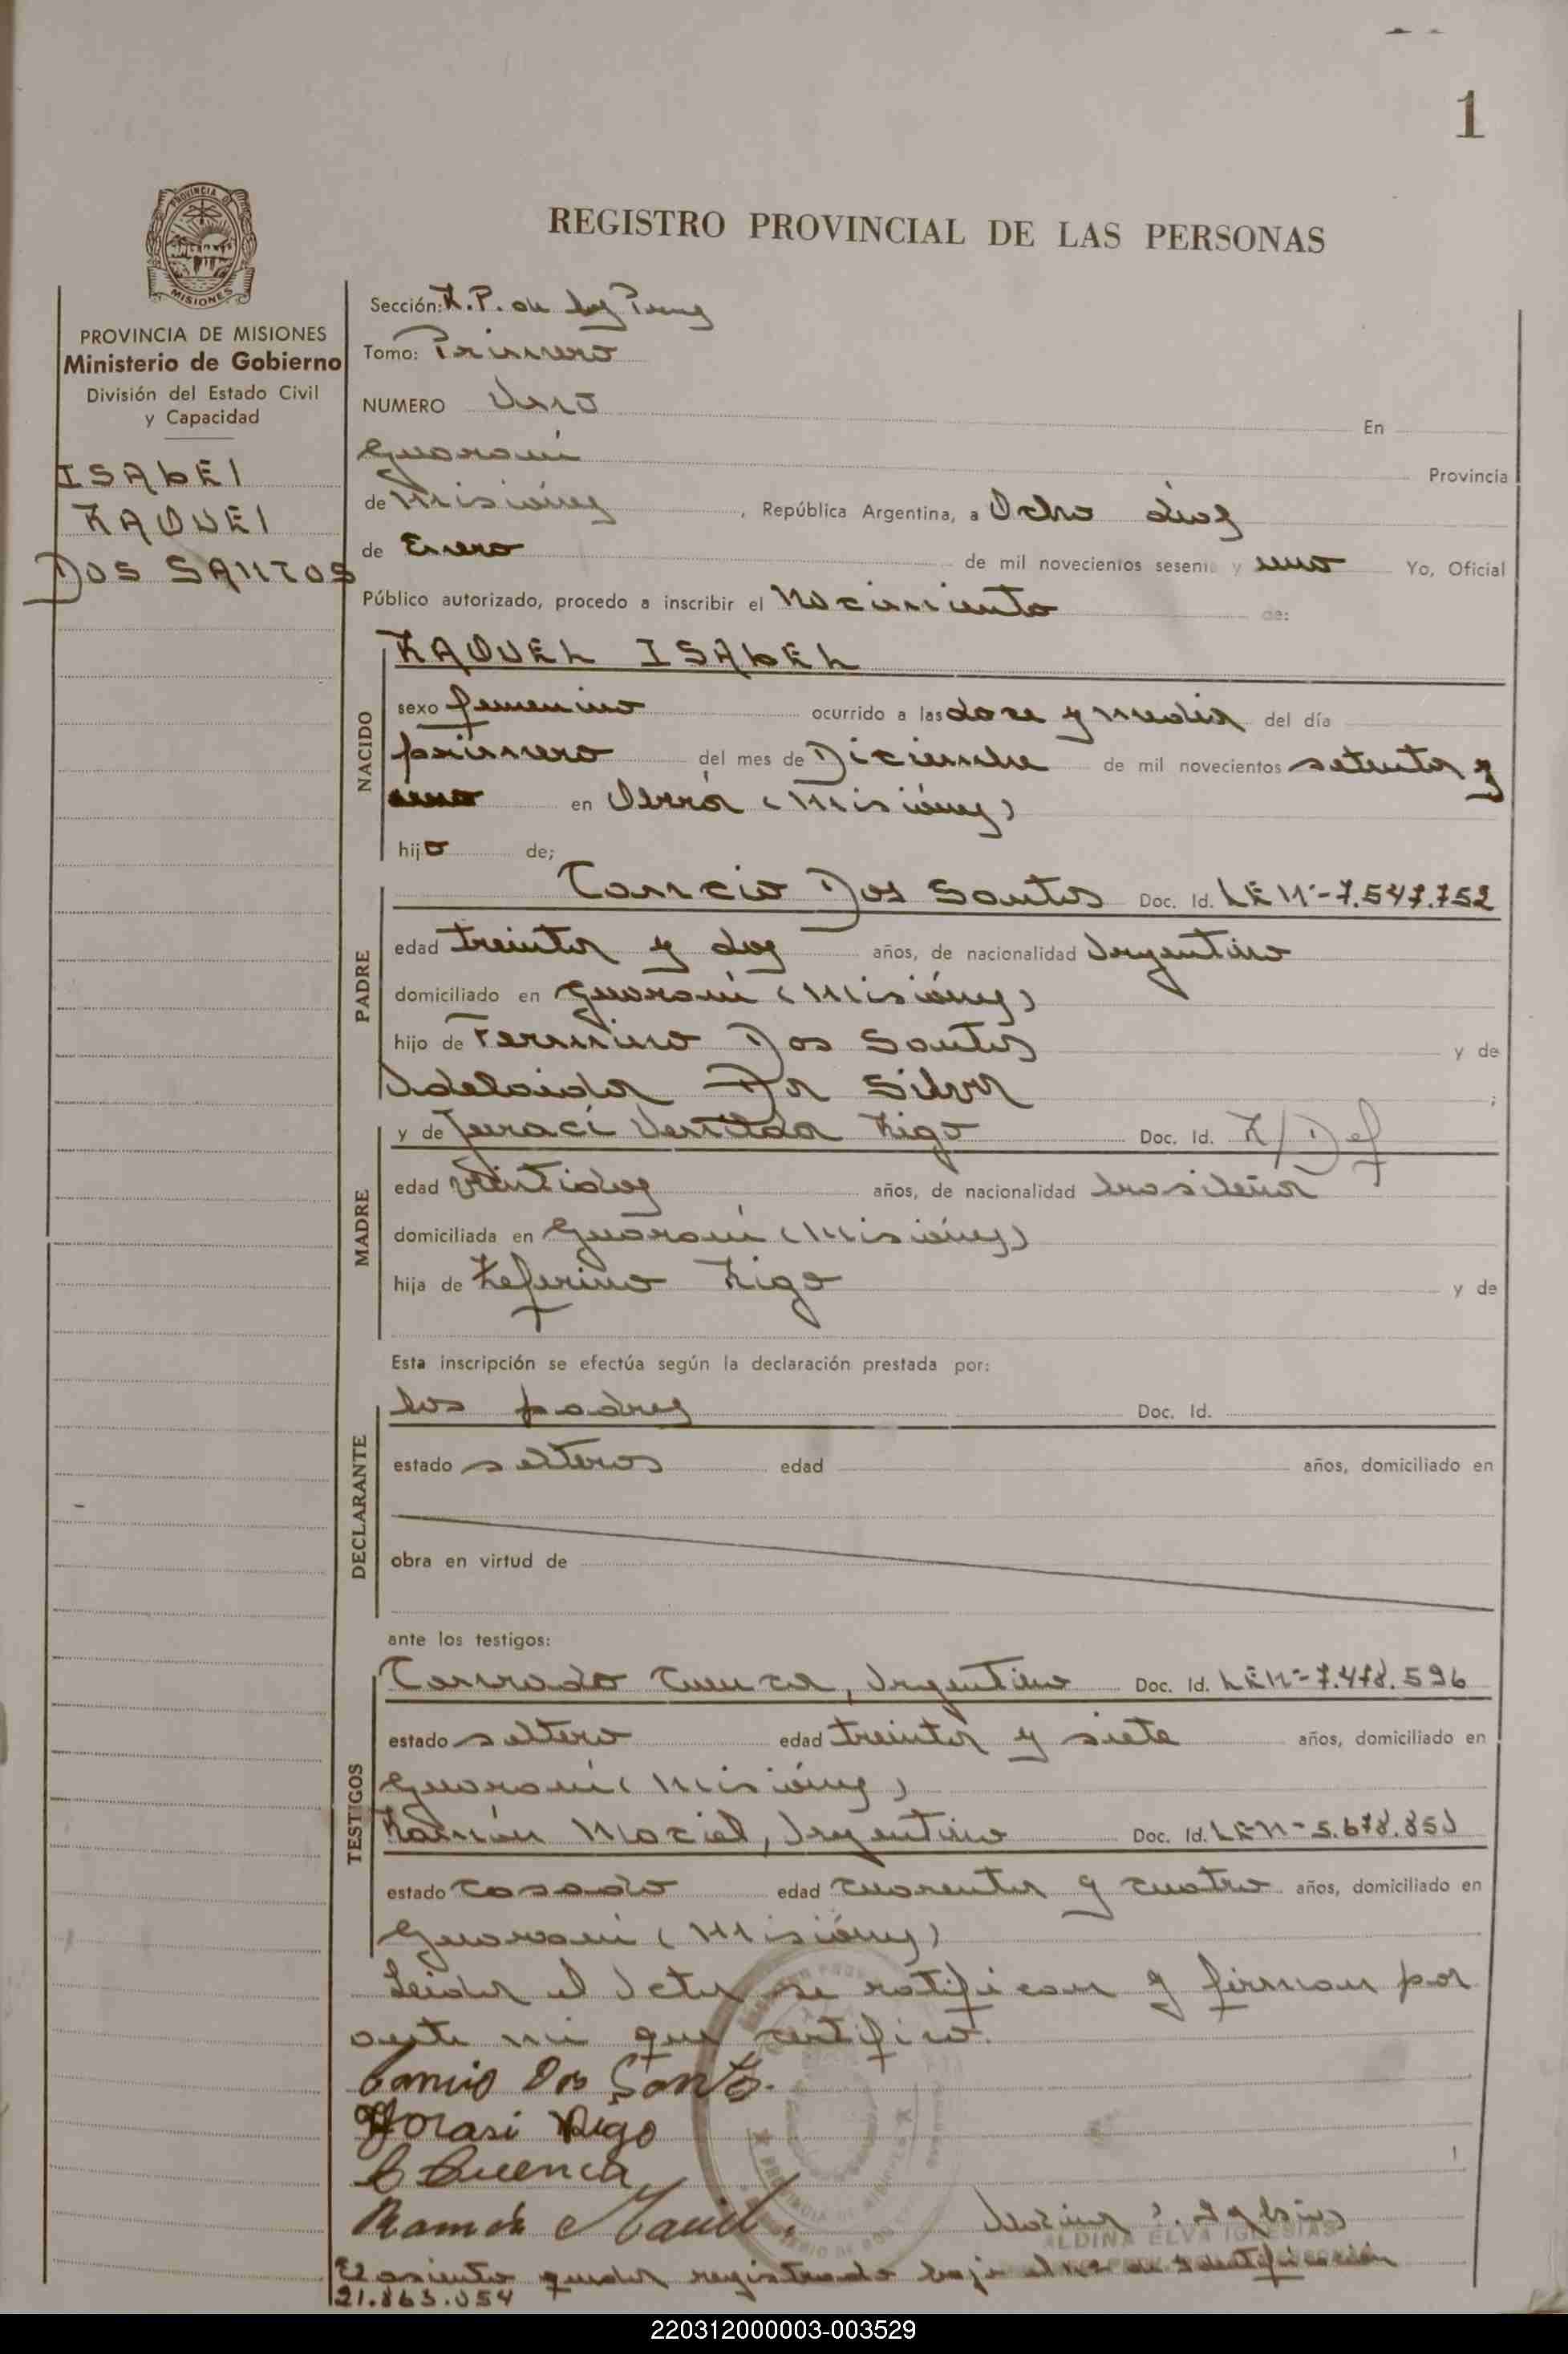 1
REGISTRO PROVINCIAL DE LAS PERSONAS
PROVINCIA DE
MISIONES
PROVINCIA DE MISIONES
Ministerio de Gobierno
División del Estado Civil
y Capacidad
ISAbEl
RAQUEl
DOS SANTOS
Sección: R.P. de las
Tomo: Primero
NUMERO Uno
En
Guaraní
Provincia
de Misiones, República Argentina, a Ocho días
de Enero de mil novecientos sesenta y uno Yo, Oficial
Público autorizado, procedo a inscribir el Nacimiento de:
NACIDO
RAQUEL ISAbEL
sexo femenino ocurrido a las doce y media del día
primero del mes de Diciembre de mil novecientos setenta y
uno en Oberá (Misiones)
hijo de;
PADRE
Dos Santos Doc. Id. LE Nº-7.547.752
edad treinta y dos años, de nacionalidad Argentino
domiciliado en Guaraní (Misiones)
hijo de Fermino Dos Santos y de
Adelaida Da Silva ;
MADRE
y de Juraci Rigo Doc. Id. N/Def
edad veintidos años, de nacionalidad brasileña
domiciliada en Guaraní (Misiones)
hija de Zeferino Rigo y de
Esta inscripción se efectúa según la declaración prestada por:
DECLARANTE
los padres Doc. Id.
estado solteros edad años, domiciliado en
obra en virtud de
ante los testigos:
TESTIGOS
Conrado Cuenca, Argentino Doc. Id. LE Nº-7.478.596
estado soltero edad treinta y siete años, domiciliado en
Guaraní (Misiones)
Ramón Maciel, Argentino Doc. Id. LE Nº-5.678.850
estado casado edad cuarenta y cuatro años, domiciliado en
Guaraní (Misiones)
Leida el Acta se ratifican y firman por
ante mi que certifico.
Dos Santos.
Rigo
C Cuenca
Ramón Maciel.
ALDINA ELVA IGLESIAS
El asiento queda registrado bajo el nº de identificación
21.863.054
220312000003-003529